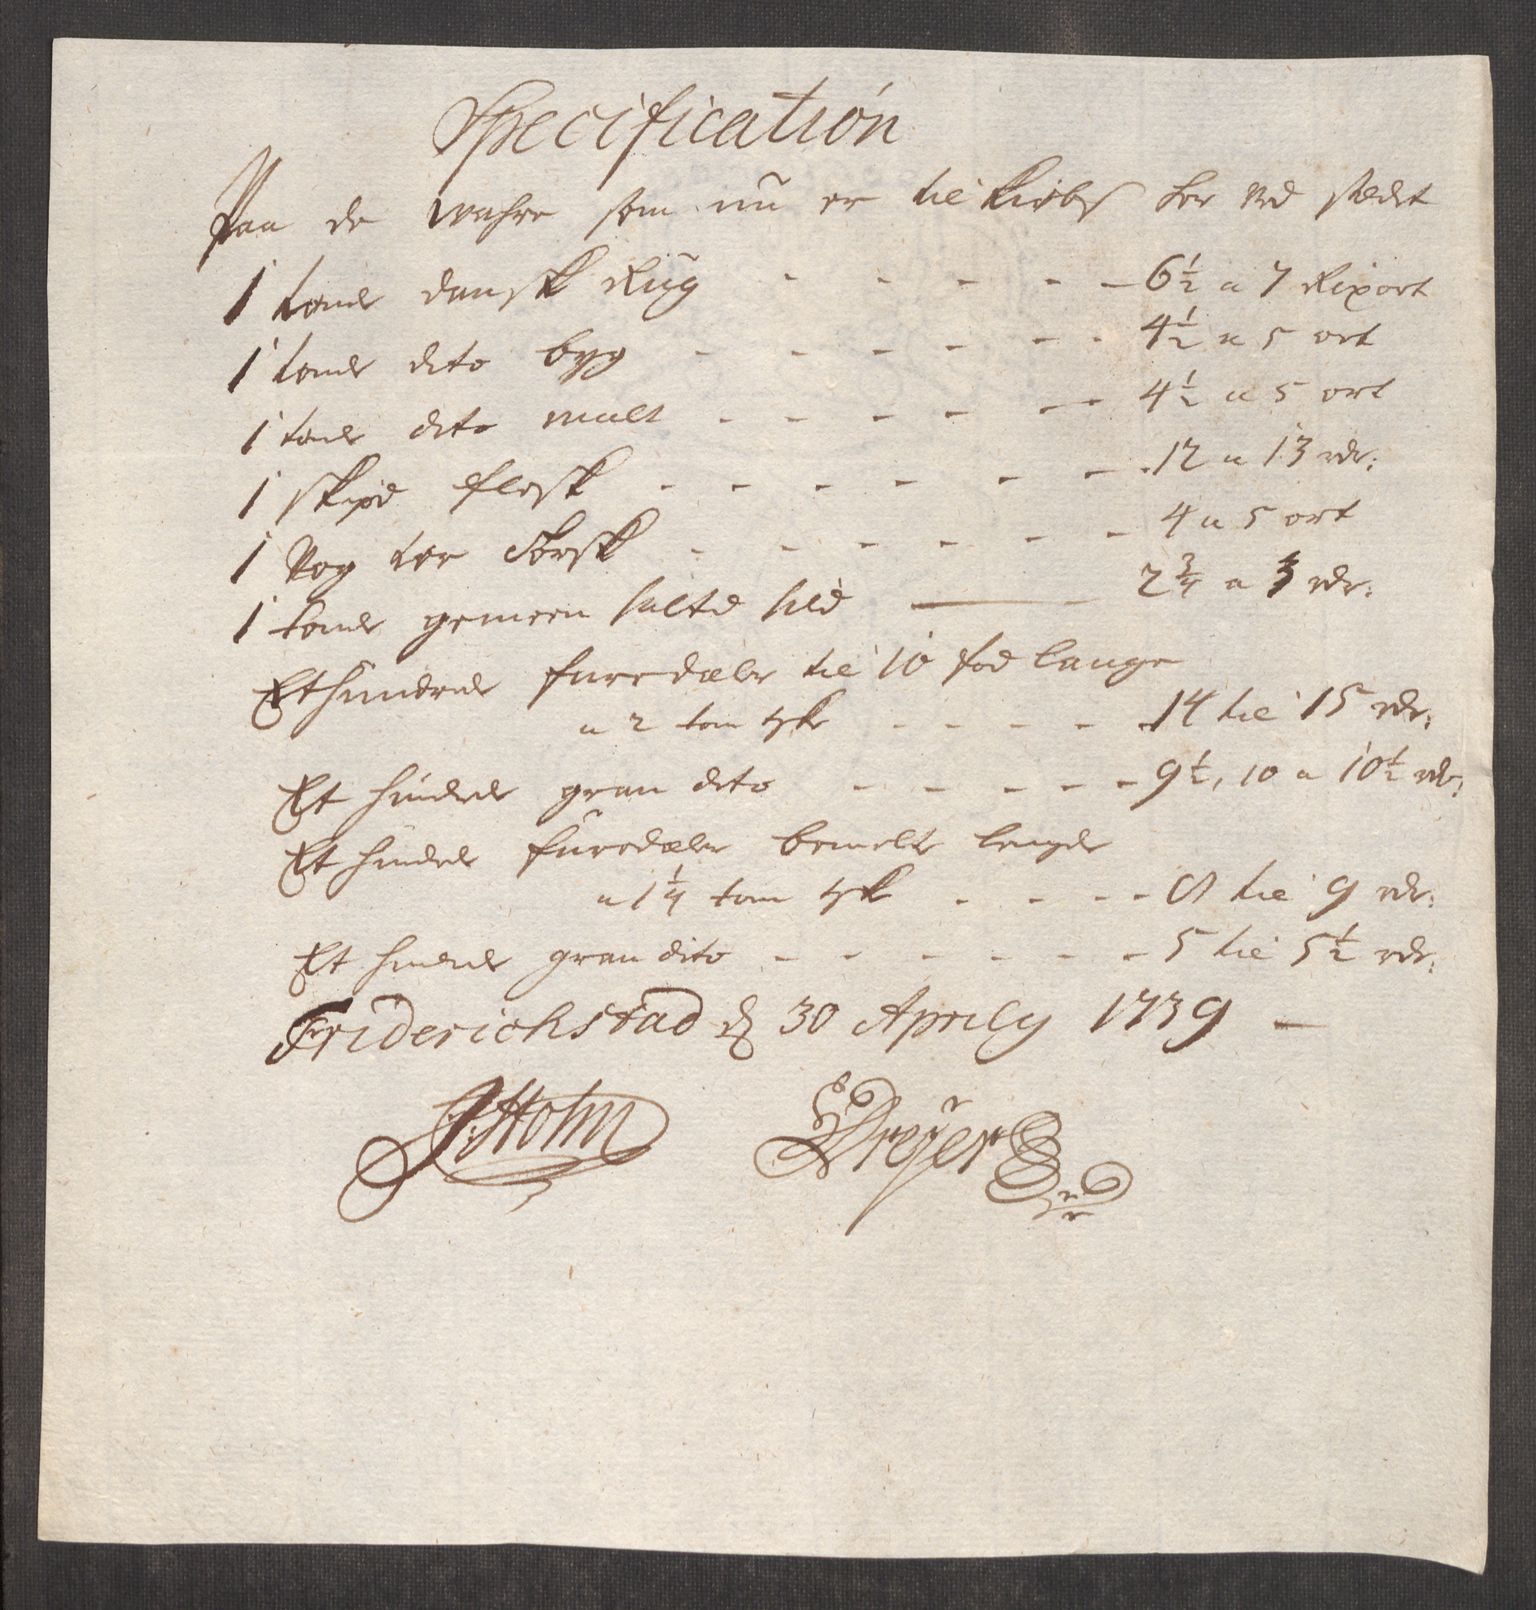 Specification
Paa de wahre som nu er til Kiøbs her ved stædet
1 tønde dansk Rug - - - - - 6½ a 7 Rixort
1 tønde dito byg - - - - - - 4½ a 5 ort
1 tønde dito malt - - - - - - 4½ a 5 ort
1 skpd flesk - - - - - - - 12 a 13 rdr:
1 Vog tør Torsk - - - - - - 4 a 5 ort
1 tønde gemeen salted sild — 2¾ a 3 rdr:
Et hundrede furedæler til 10 fod lange
a 2 tom tyk - - - - - 14 til 15 rdr:
Et hundrede gran dito - - - - - 9½, 10 a 10½ rdr:
Et hundrede furedæler bemelte lengde
a 1¼ tom tyk - - - - 8 til 9 rdr:
Et hundrede gran dito - - - - - - 5 til 5½ rdr:
Friderichstad d 30 Aprily 1739 —
J: Holm Dreÿer